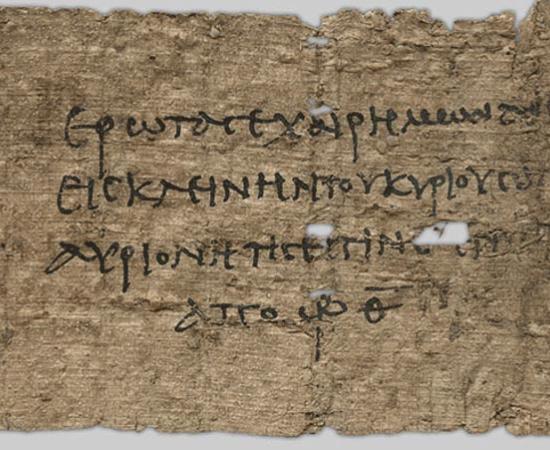 ερωτα σε χαιρημων
εις κλεινην του κυριου
αυριον ητις εστιν
απο ωρ θ̅